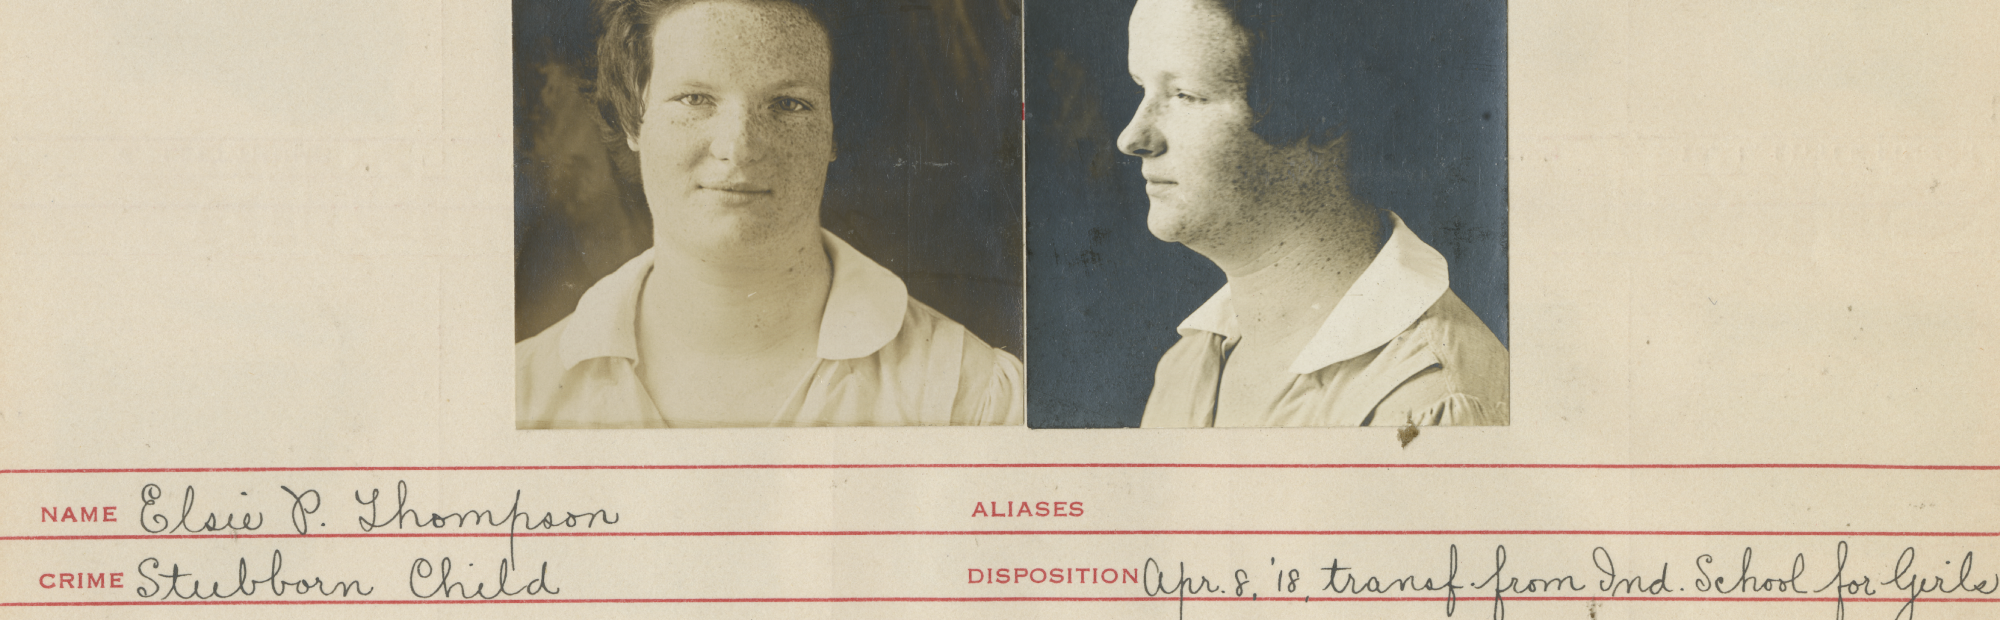 NAME Elsie P. Thompson ALIASES
CRIME Stubborn Child DISPOSITION Apr. 8, '18, transf. from Ind. School for Girls